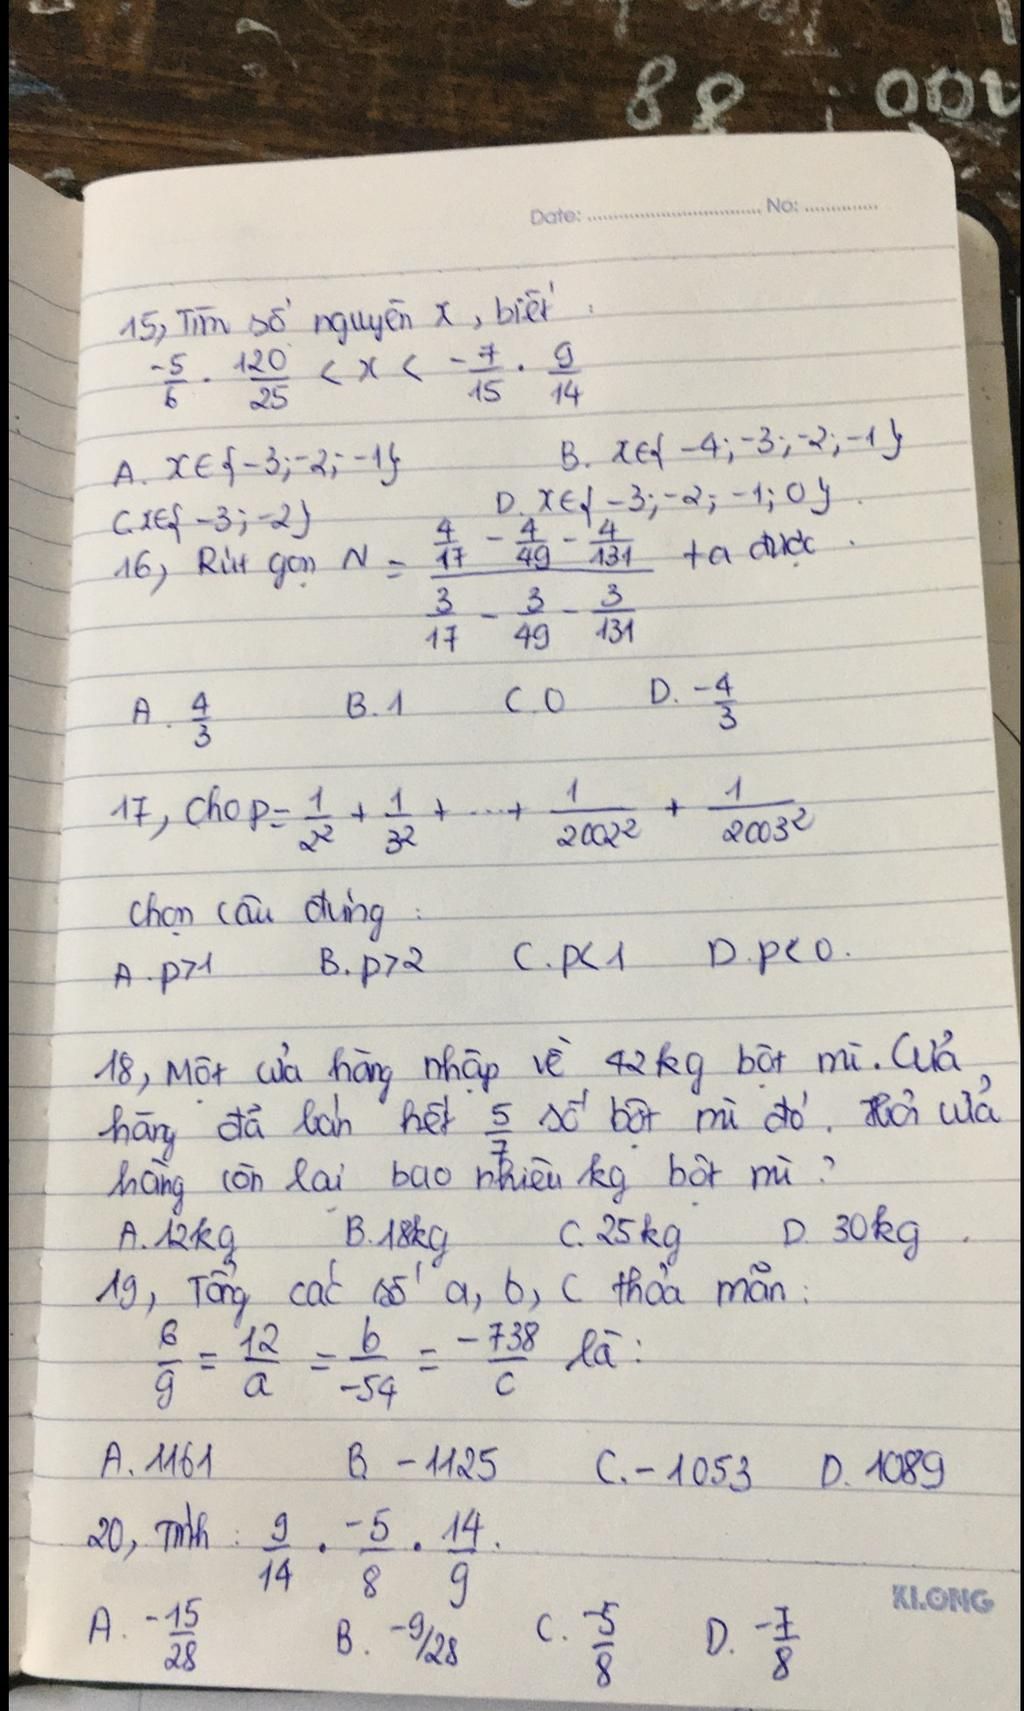 88 :
Date: ........................ No: ............
15, Tìm số nguyên x, biết :
-5/6 . 120/25 < x < -7/15 . 9/14
A. x∈{-3;-2;-1} B. x∈{-4;-3;-2;-1}
C. x∈{-3;-2} D. x∈{-3;-2;-1;0}.
16, Rút gọn N = (4/17 - 4/49 - 4/131)/(3/17 - 3/49 - 3/131) ta được.
A. 4/3 B. 1 C. 0 D. -4/3
17, Cho p = 1/2² + 1/3² + ... + 1/2002² + 1/2003²
Chọn câu đúng :
A. p>1 B. p>2 C. p<1 D. p<0.
18, Một cửa hàng nhập về 42kg bột mì. Cửa
hàng đã bán hết 5/7 số bột mì đó. Hỏi cửa
hàng còn lại bao nhiêu kg bột mì ?
A. 12kg B. 18kg C. 25kg D. 30kg.
19, Tổng các số a, b, c thỏa mãn :
6/9 = 12/a = b/-54 = -738/c là :
A. 1161 B. -1125 C. -1053 D. 1089
20, Tính : 9/14 . -5/8 . 14/9.
A. -15/28 B. -9/28 C. -5/8 D. -7/8
KLONG